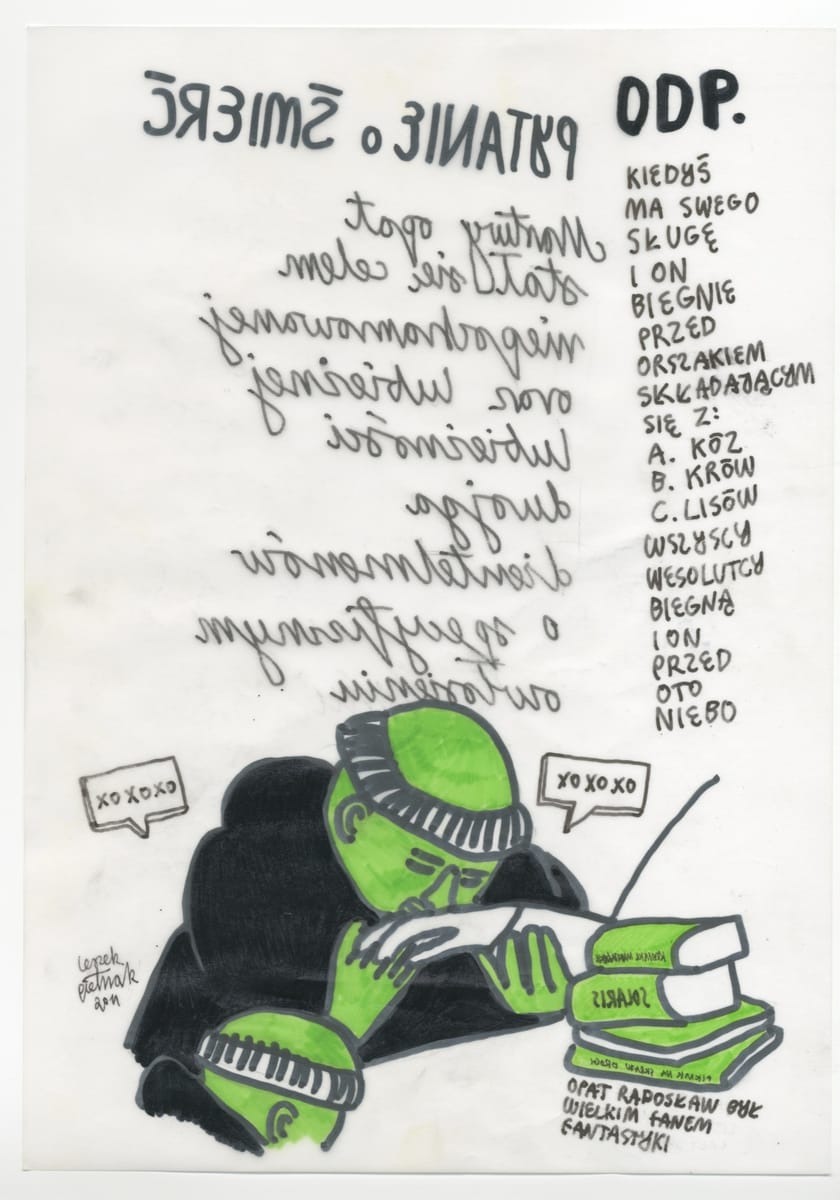 PYTANIE o ŚMIERĆ
Martwy opat
stał się celem
niepohamowanej
oraz lubieżnej
lubieżności
dwojga
dżentelmenów
o specyficznym
owłosieniu
ODP.
KIEDYŚ
MA SWEGO
SŁUGĘ
I ON
BIEGNIE
PRZED
ORSZAKIEM
SKŁADAJĄCYM
SIĘ Z:
A. KÓZ
B. KRÓW
C. LISÓW
WSZYSCY
WESOLUTCY
BIEGNĄ
I ON
PRZED
OTO
NIEBO
XOXOXO
XOXOXO
SOLARIS
PIKNIK NA SKRAJU DROGI
OPAT RADOSŁAW BYŁ
WIELKIM FANEM
FANTASTYKI
2011